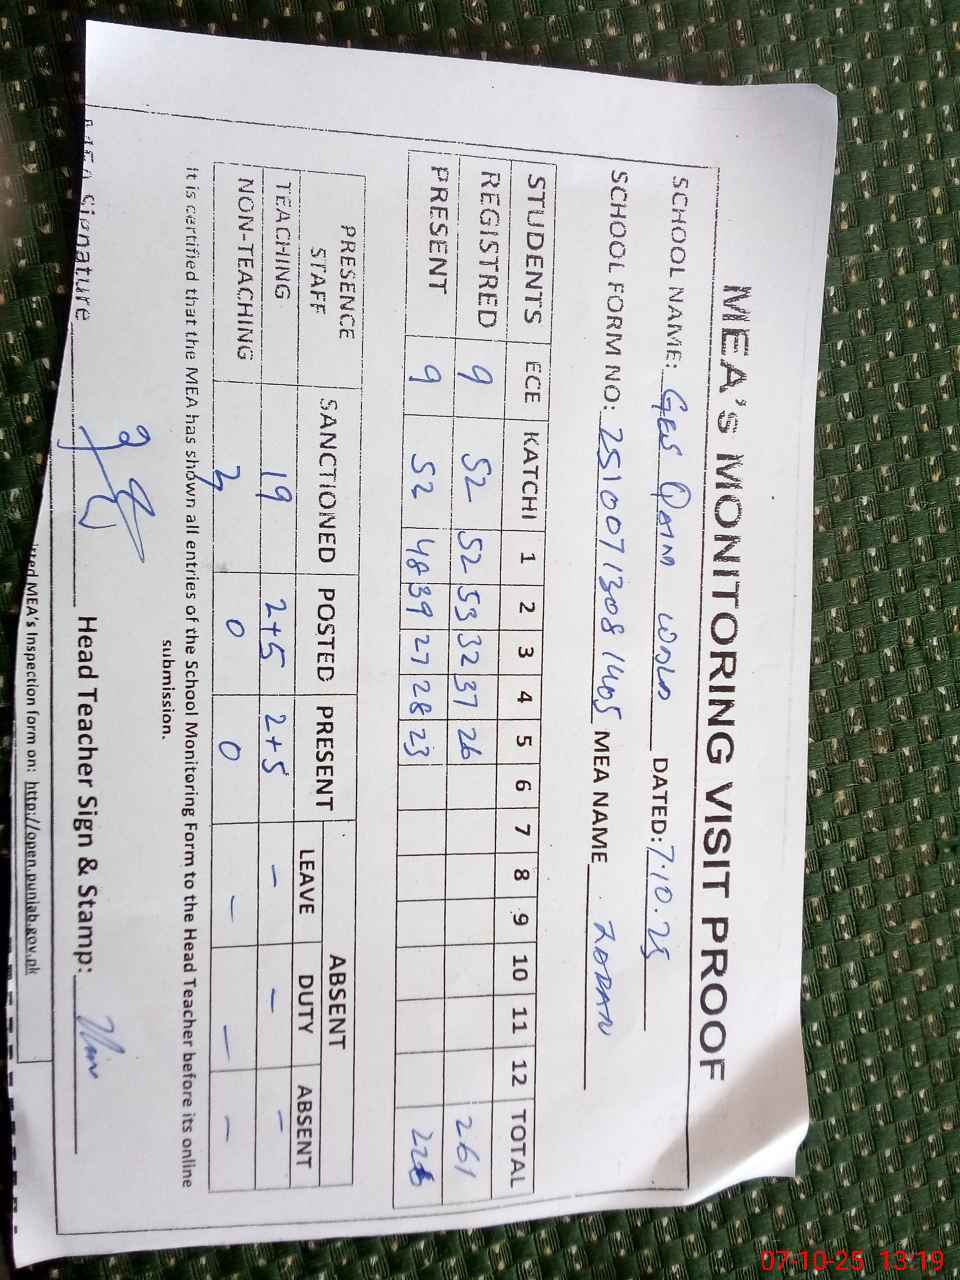 MEA's MONITORING VISIT PROOF
SCHOOL NAME: GES DATED: 7.10.25
SCHOOL FORM NO: 251007 1308 1405 MEA NAME
STUDENTS ECE KATCHI 1 2 3 4 5 6 7 8 9 10 11 12 TOTAL
REGISTRED 9 52 52 53 32 37 26 261
PRESENT 9 52 48 39 27 28 23 226
PRESENCE STAFF SANCTIONED POSTED PRESENT ABSENT
LEAVE DUTY ABSENT
TEACHING 19 2+5 2+5 - - -
NON-TEACHING 0 0 - - -
It is certified that the MEA has shown all entries of the School Monitoring Form to the Head Teacher before its online
submission.
MEA Signature Head Teacher Sign & Stamp:
MEA's Inspection form on: http://open.punjab.gov.pk
07-10-25 13:19